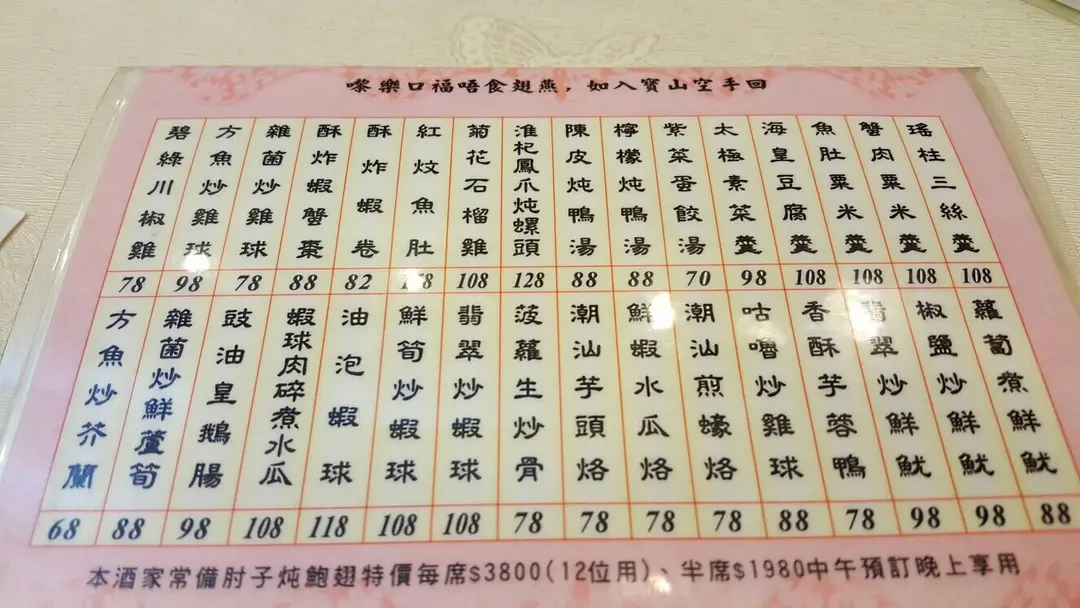 嚟樂口福唔食翅燕，如入寶山空手回
瑤柱三絲羹
108
蟹肉粟米羹
108
魚肚粟米羹
108
海皇豆腐羹
108
太極素菜羹
98
紫菜蛋餃湯
70
檸檬炖鴨湯
88
陳皮炖鴨湯
88
淮杞鳳爪炖螺頭
128
菊花石榴雞
108
紅炆魚肚
酥炸蝦卷
82
酥炸蝦蟹棗
88
雜菌炒雞球
78
方魚炒雞球
98
碧綠川椒雞
78
蘿蔔煮鮮魷
88
椒鹽炒鮮魷
98
翡翠炒鮮魷
98
香酥芋蓉鴨
78
咕嚕炒雞球
88
潮汕煎蠔烙
78
鮮蝦水瓜烙
78
潮汕芋頭烙
78
菠蘿生炒骨
78
翡翠炒蝦球
108
鮮筍炒蝦球
108
油泡蝦球
118
蝦球肉碎煮水瓜
108
豉油皇鵝腸
98
雜菌炒鮮蘆筍
88
方魚炒芥蘭
68
本酒家常備肘子炖鮑翅特價每席$3800(12位用)、半席$1980中午預訂晚上享用